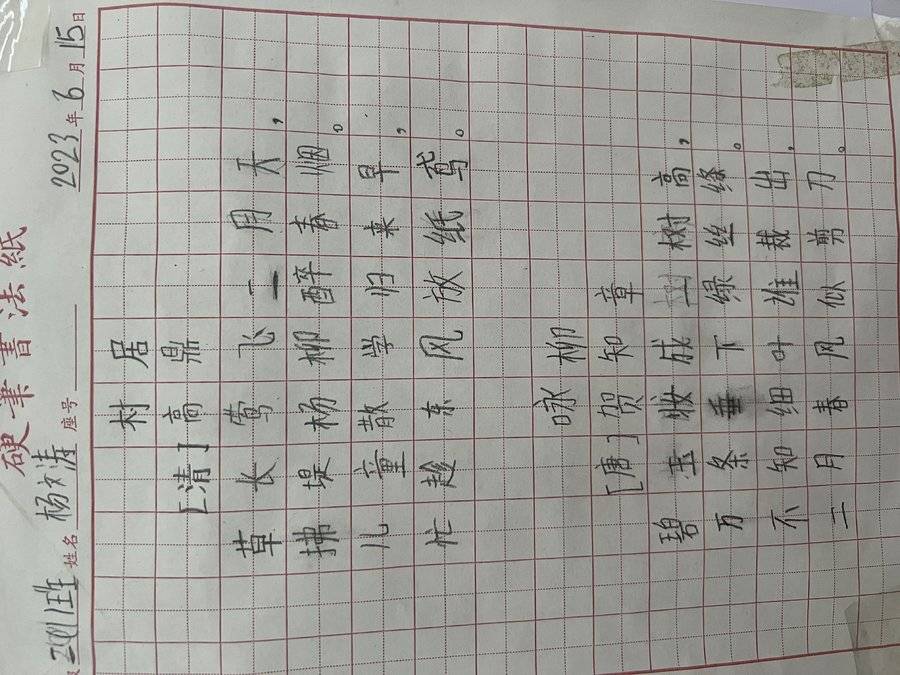 硬筆書法紙
2011班 姓名 杨文涛 座号 2023年6月15日
村居
[清]高鼎
草长莺飞二月天,
拂堤杨柳醉春烟。
儿童散学归来早,
忙趁东风放纸鸢。
咏柳
[唐]贺知章
碧玉妆成一树高,
万条垂下绿丝绦。
不知细叶谁裁出,
二月春风似剪刀。